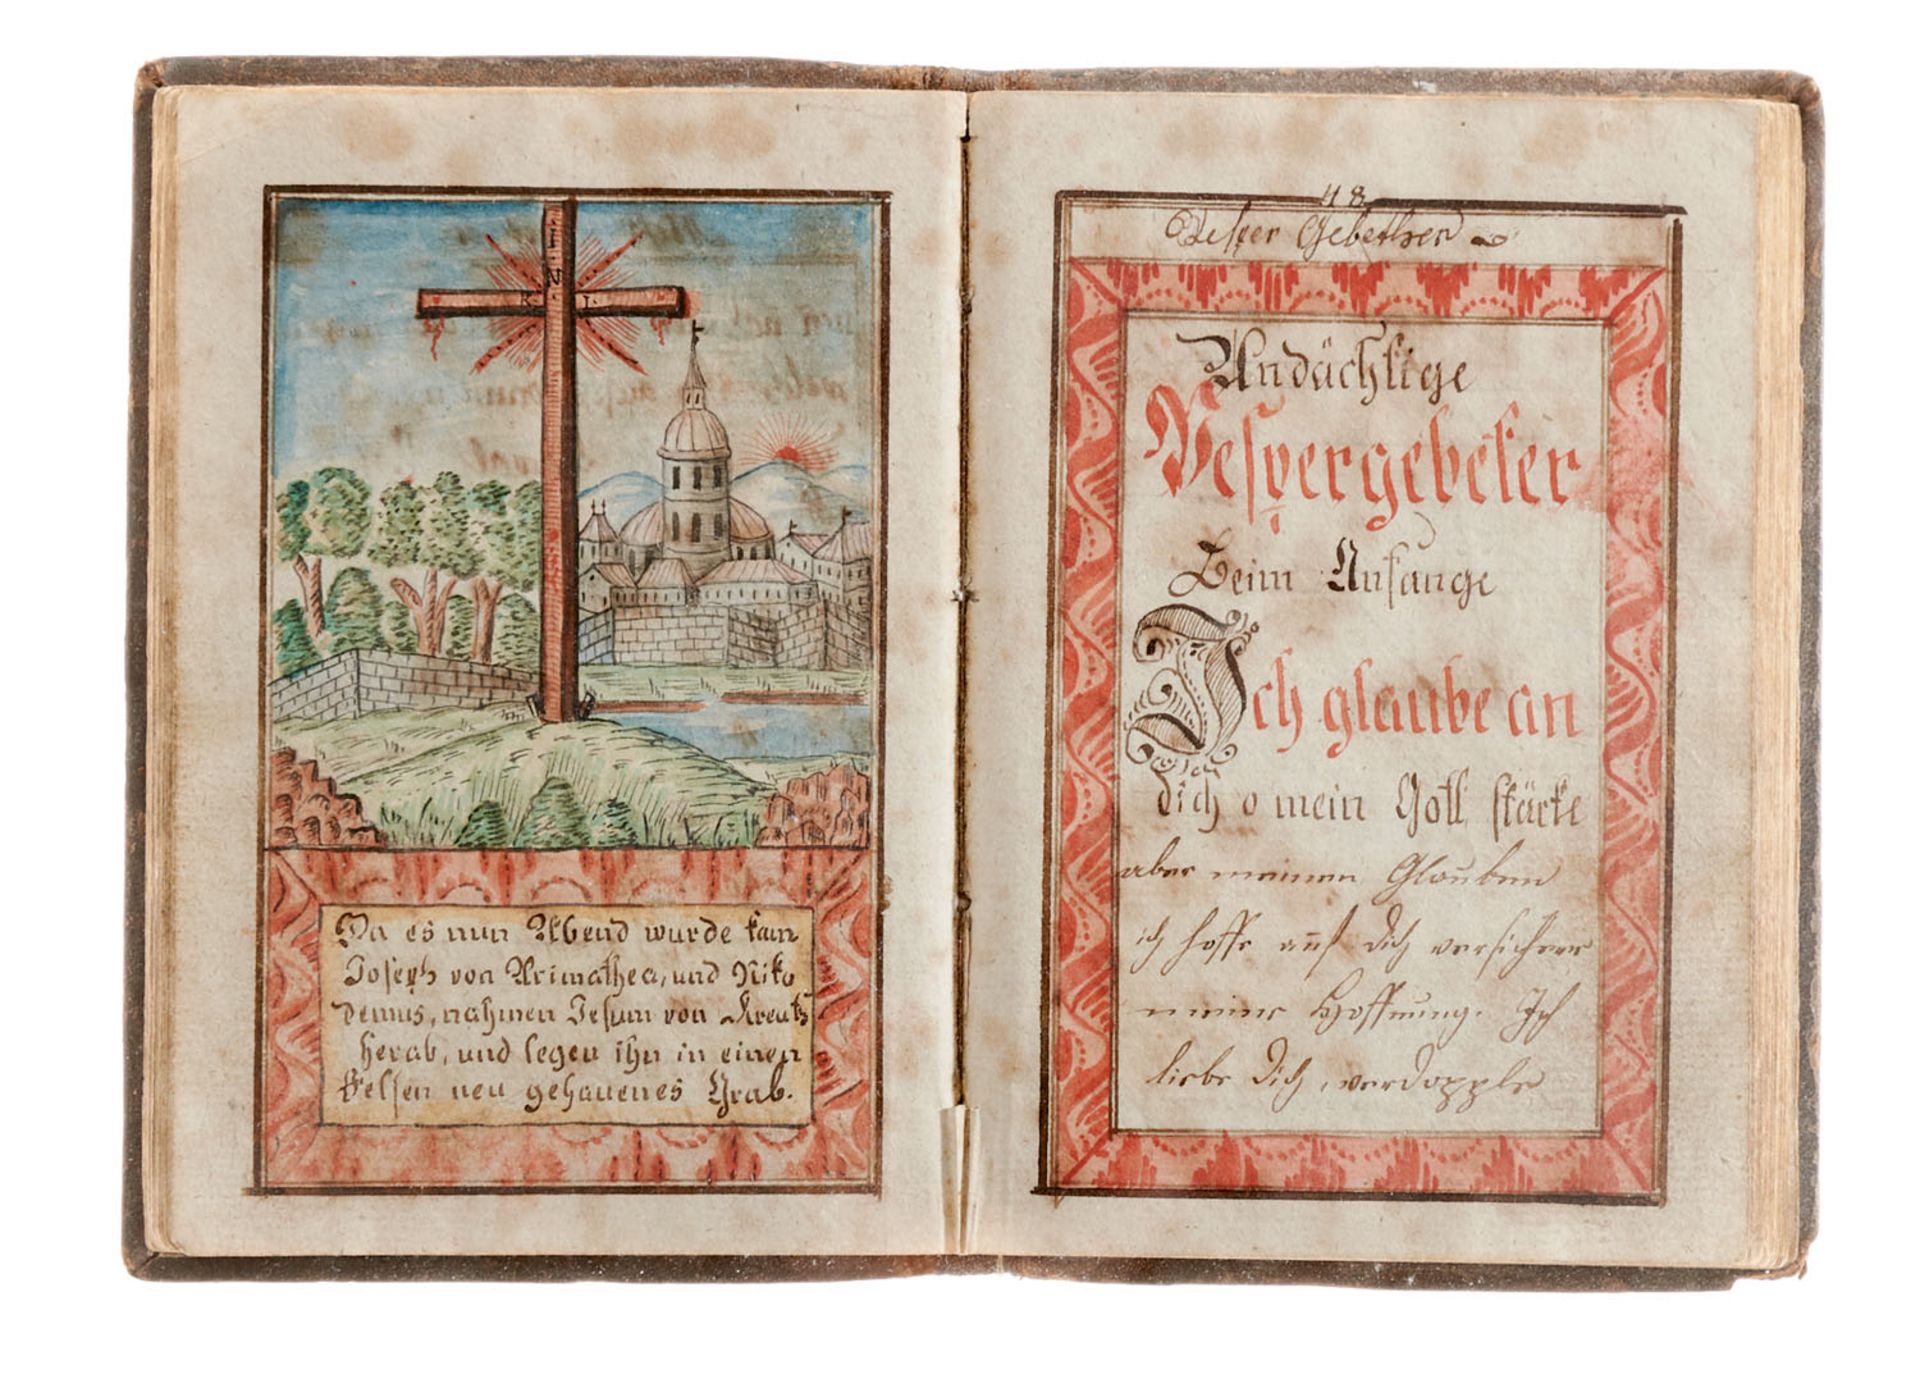 I.
N
R. I.
Da es nun Abend wurde kam
Joseph von Arimathea, und Niko
demus, nahmen Jesum von Kreutz
herab, und legen ihn in einen
Felsen neu gehauenes Grab.
48
Vesper Gebether
Andächtige
Vespergebeter
Beim Anfange
Ich glaube an
dich o mein Gott stärke
aber meinen Glauben
ich hoffe auf dich versichere
meine Hoffnung. Ich
liebe dich, verdopple